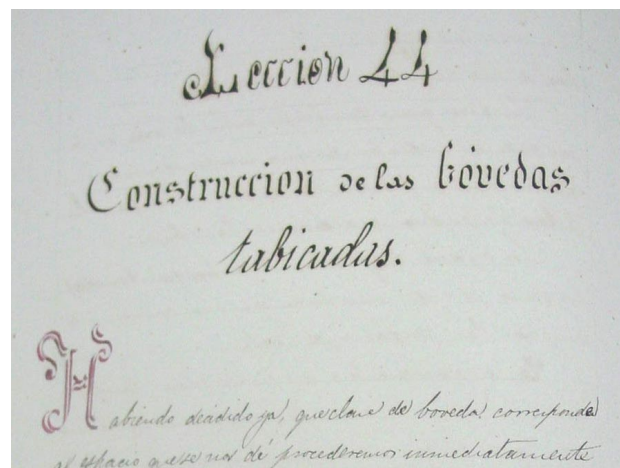 Leccion 44
Construccion de las bóvedas
tabicadas.
Habiendo decidido ya, que clase de boveda corresponde
al espacio que se nos dé procederemos inmediatamente